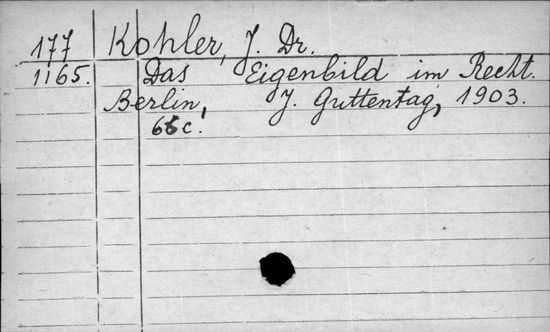 177 Kohler, J. Dr.
1165. Das Eigenbild im Recht.
Berlin, J. Guttentag, 1903.
c.